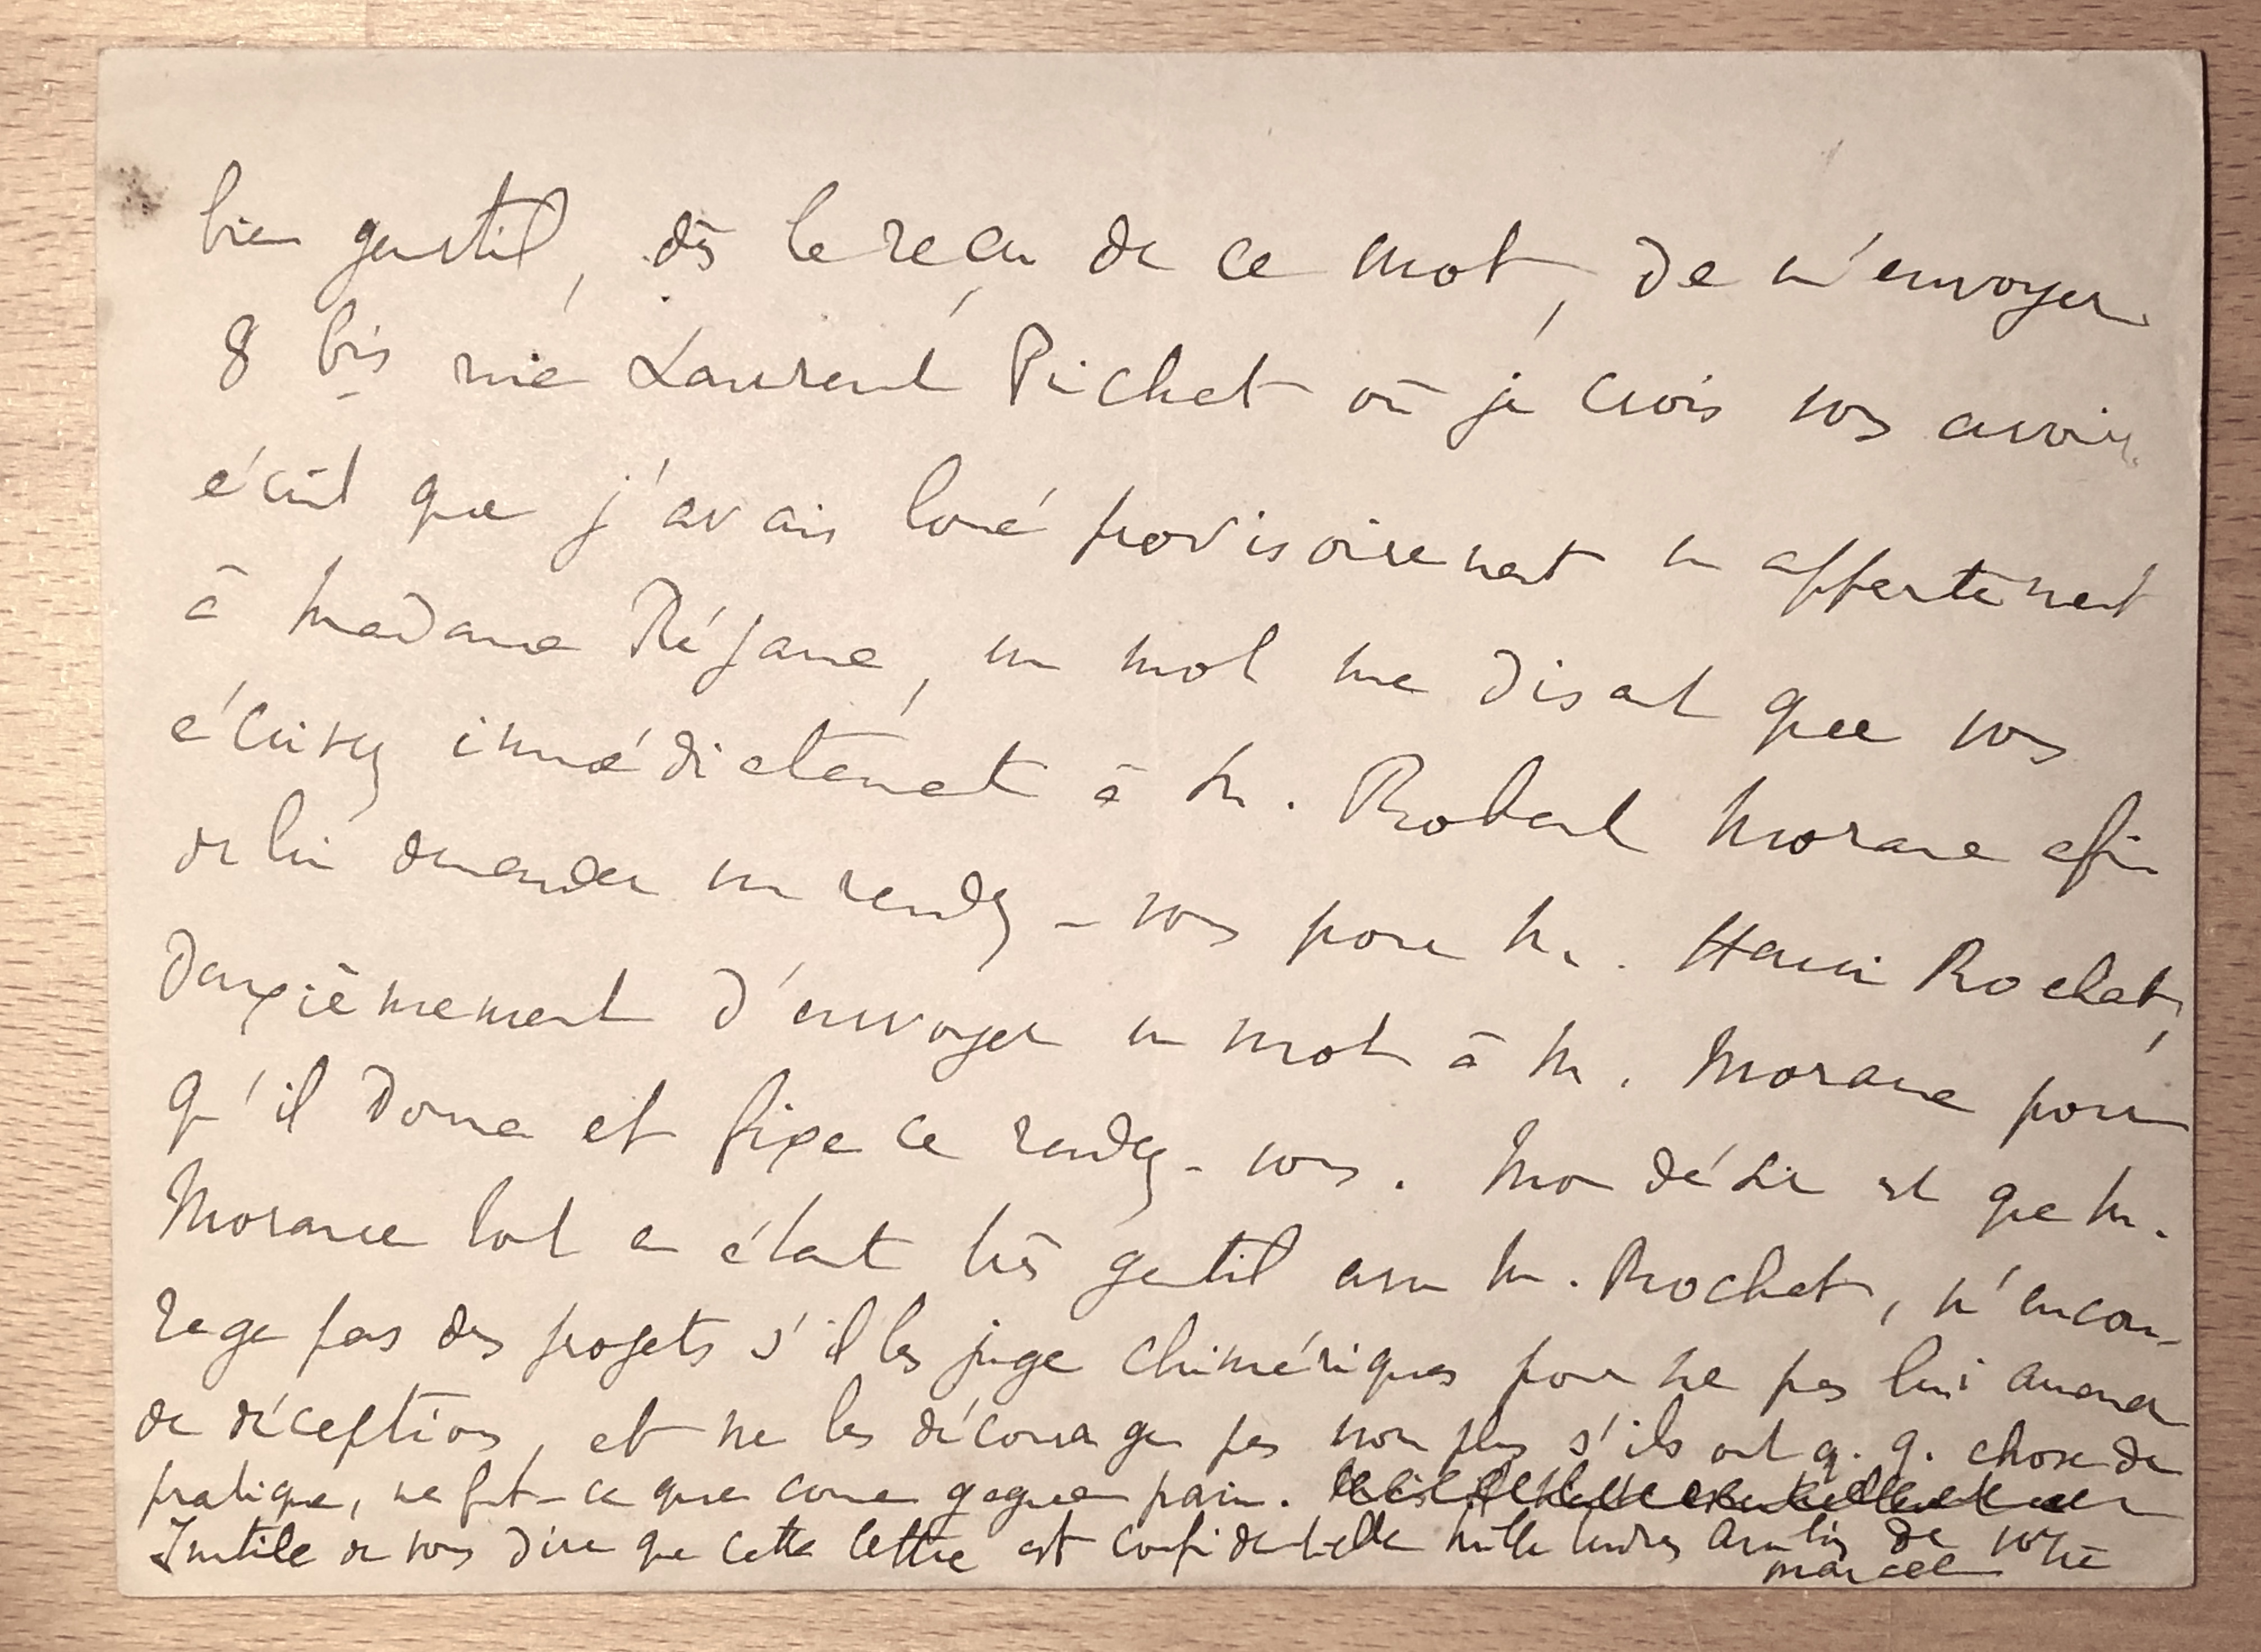 bien gentil, dès le reçu de ce mot, de m'envoyer
8 bis rue Laurent Pichat où je crois vous avoir
écrit que j'avais loué provisoirement un appartement
à Madame Réjane, un mot me disant que vous
écrivez immédiatement à M. Robert Morane afin
de lui demander un rendez-vous pour M. Henri Rochat,
Deuxièmement d'envoyer un mot à M. Morane pour
qu'il donne et fixe ce rendez-vous. Mon désir est que M.
Morane tout en étant très gentil avec M. Rochat, n'encou-
rage pas des projets s'il les juge chimériques pour ne pas lui amener
de déceptions, et ne les décourage pas non plus s'ils ont q.q. chose de
pratique, ne fut-ce que come gagne pain.
Inutile de vous dire que cette lettre est confidentielle Mille tendres amitiés de votre
Marcel